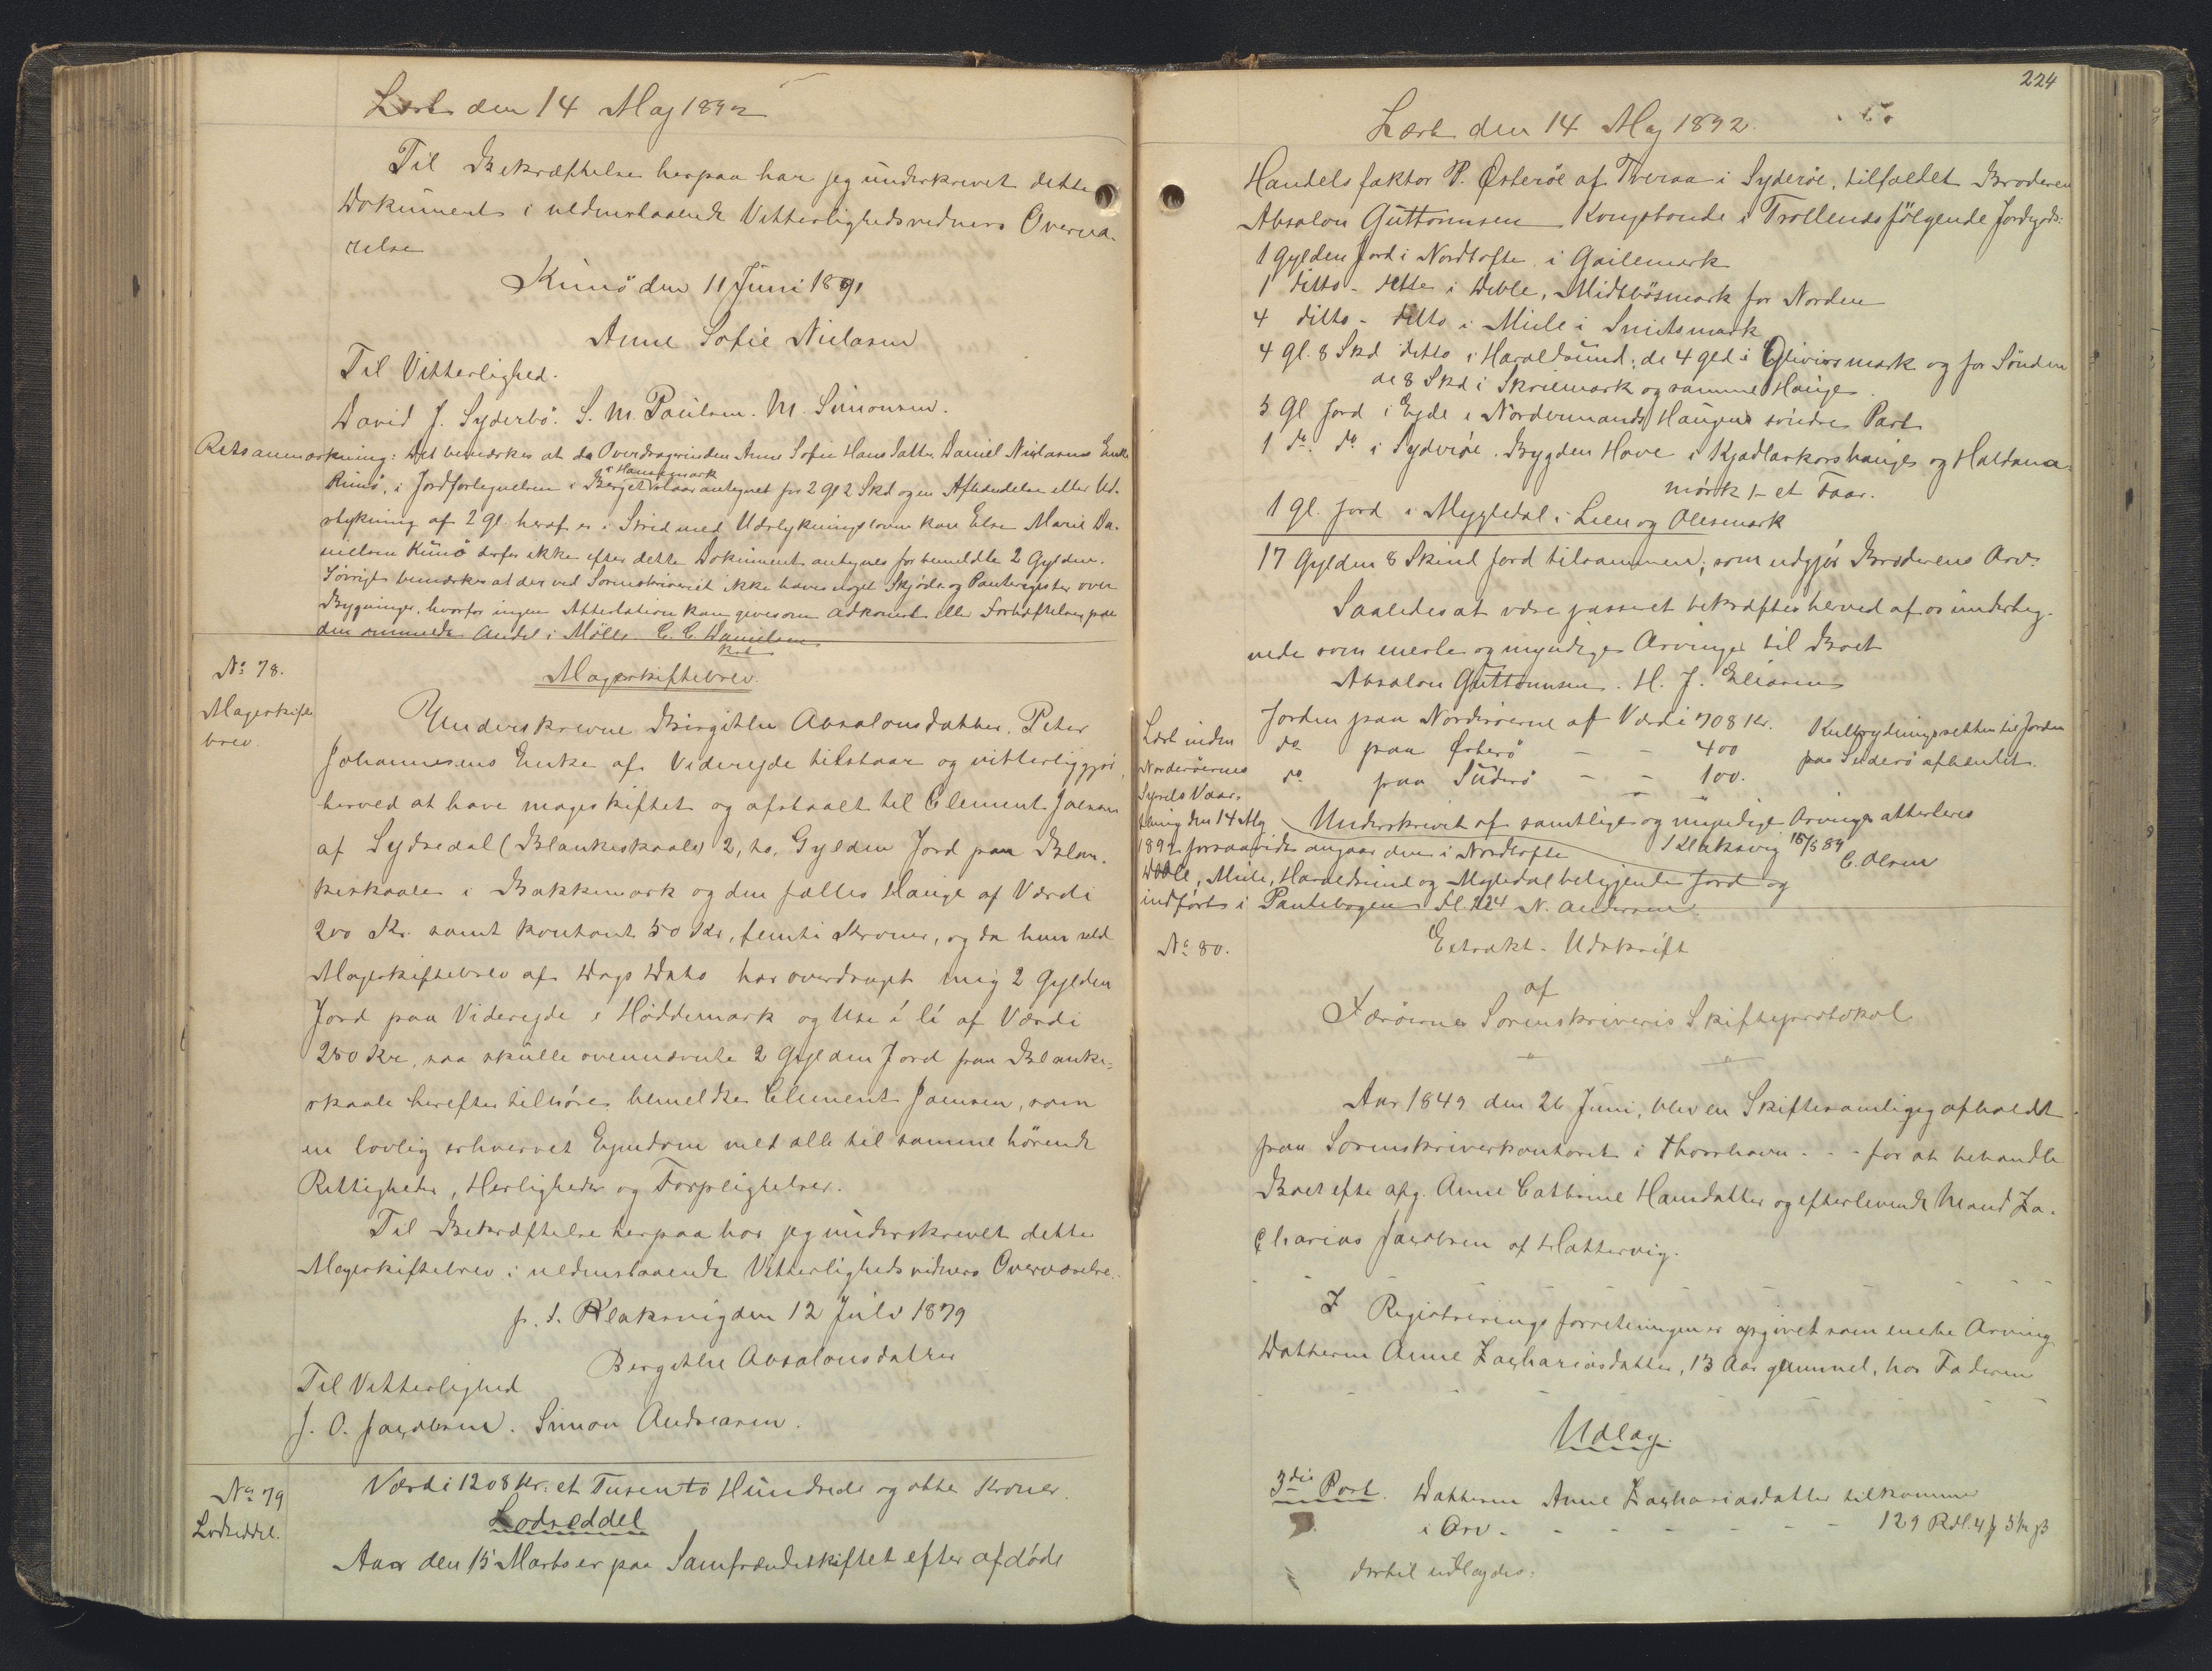 Læst den 14 Maj 1892
Til Bekræftelse herpaa har jeg underskrevet dette
Dokument i nedenstaaende Vitterlighedsvidners Overvæ-
relse
Kunö den 11 Juni 1891
Anne Sofie Nielsen
Til Vitterlighed.
David J. Syderbö. S. M. Poulsen. M. Simonsen.
Retsanmærkning: Det bemærkes at da Overdragerinden Anne Sofie Hansdatter Daniel Nielsens Enke
i Hansamark
Kunö, i Jordfortegnelsen i staar antegnet for 2 Gl 2 Skd og en Afhændelse eller Ud-
stykning af 2 gl. heraf er i Strid med Udstykningsloven kan Else Marie Da-
nielsen Kunö derfor ikke efter dette Dokument antegnes for bemeldte 2 Gylden.
Iövrigt bemærkes at der ved Sorenskriveriet ikke haves noget Skjöde og Panteregister over
Bygninger, hvorfor ingen Attestation kan gives om Adkomst eller Forhæftelser paa
den ommeldte Andel i Mölle. C. C. Danielsen
kst
No 78.
Mageskifte
brev.
Mageskiftebrev.
Underskrevne Birgithe Absalonsdatter, Peter
Johannesens Enke af Viderejde tilstaar og vitterliggjör
herved at have mageskiftet og afstaaet til Clement Joensen
af Sydredal (Blankeskaale) 2, to, Gylden Jord paa Blan-
keskaale i Bakkemark og den fælles Hauge af Værdi
200 Kr. samt kontant 50 Kr, femti Kroner, og da han ved
Mageskiftebrev af Dags Dato har overdraget mig 2 Gylden
Jord paa Viderejde i Höddemark og Uti i li af Værdi
250 Kr, saa skulle ovennævnte 2 Gylden Jord paa Blanke-
skaale herefter tilhöre bemeldte Clement Joensen, som
en lovlig erhvervet Ejendom med alle til samme hörende
Rettigheder, Herligheder og Forpligtelser.
Til Bekræftelse herpaa har jeg underskrevet dette
Mageskiftebrev i nedenstaaende Vitterlighedsvidners Overværelse.
p. t. Klaksvig den 12 Juli 1879
Bergithe Absalonsdatter
Til Vitterlighed
J. O. Jacobsen. Simon Andreasen.
No 79
Lodseddel.
Værdi 1208 Kr. et Tusen to Hundrede og otte Kroner.
Lodseddel
Aar den 15 Marts er paa Samfrændeskiftet efter afdöde
224
Læst den 14 Maj 1892.
Handelsfaktor P. Österöe af Tveraa i Syderöe, tilfaldet Broderen
Absalon Guttormsen Kongsbonde i Trollenæs fölgende Jordgods:
1 Gylden Jord i Nordtofte i Gailemark
1 ditto - ditto i Deble, Midtbösmark for Norden
4 ditto - ditto i Mule i Snitsmark
4 gl. 8 Skd ditto i Haraldsund: de 4 gld i Glivirsmark og for Sönden
de 8 Skd i Skriemark og samme Hauge.
5 Gl Jord i Ejde i Nordermands Haugens söndre Part
1 do. do i Syderöe. Bygden Hove i Kjadlarkorshauge og Haldana-
mörk 1 et Faar.
1 gl. Jord i Mygledal i Lien og Olesmark
17 Gylden 8 Skind Jord tilsammen; som udgjör Broderens Arv.
Saaledes at være passeret bekræftes herved af os underteg-
nede som eneste og myndige Arvinger til Boet
Absalon Guttormsen. H. J. Eliasen
Jorden paa Norderöerne af Værdi 708 Kr.
do paa Österö - - 400
do paa Suderö - - 100.
Kulbrydningsretten til Jorden
paa Suderö afhændet.
Underskrevet af samtlige og myndige Arvinger attesteres
Klaksvig 15/5 89
C. Olsen
Læst inden
Norderöernes
Syssels Vaar-
thing den 14 Maj
1892 forsaavidt angaar den i Nordtofte
Deble, Mule, Haraldsund og Mygledal beliggende Jord og
indfört i Pantebogen Fol. 224 N. Andersen
No 80.
Extrakt-Udskrift
af
Færöernes Sorenskriveris Skifteprotokol
Aar 1849 den 26 Juni, blev en Skiftesamling afholdt
paa Sorenskriverkontoret i Thorshavn - - for at behandle
Boet efter afg. Anne Cathrine Hansdatter og efterlevende Mand Za-
charias Jacobsen af Hattervig.
I Registreringsforretningen er opgivet som eneste Arving
Datteren Anne Zachariasdatter, 13 Aar gammel, hos Faderen
Udlæg.
3die Post. Datteren Anne Zachariasdatter tilkommer
i Arv - - - - - - 129 Rdl. 4 ß
dertil udlagdes: